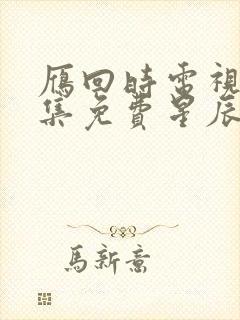 雁回時電視
集免費星辰
馬新意